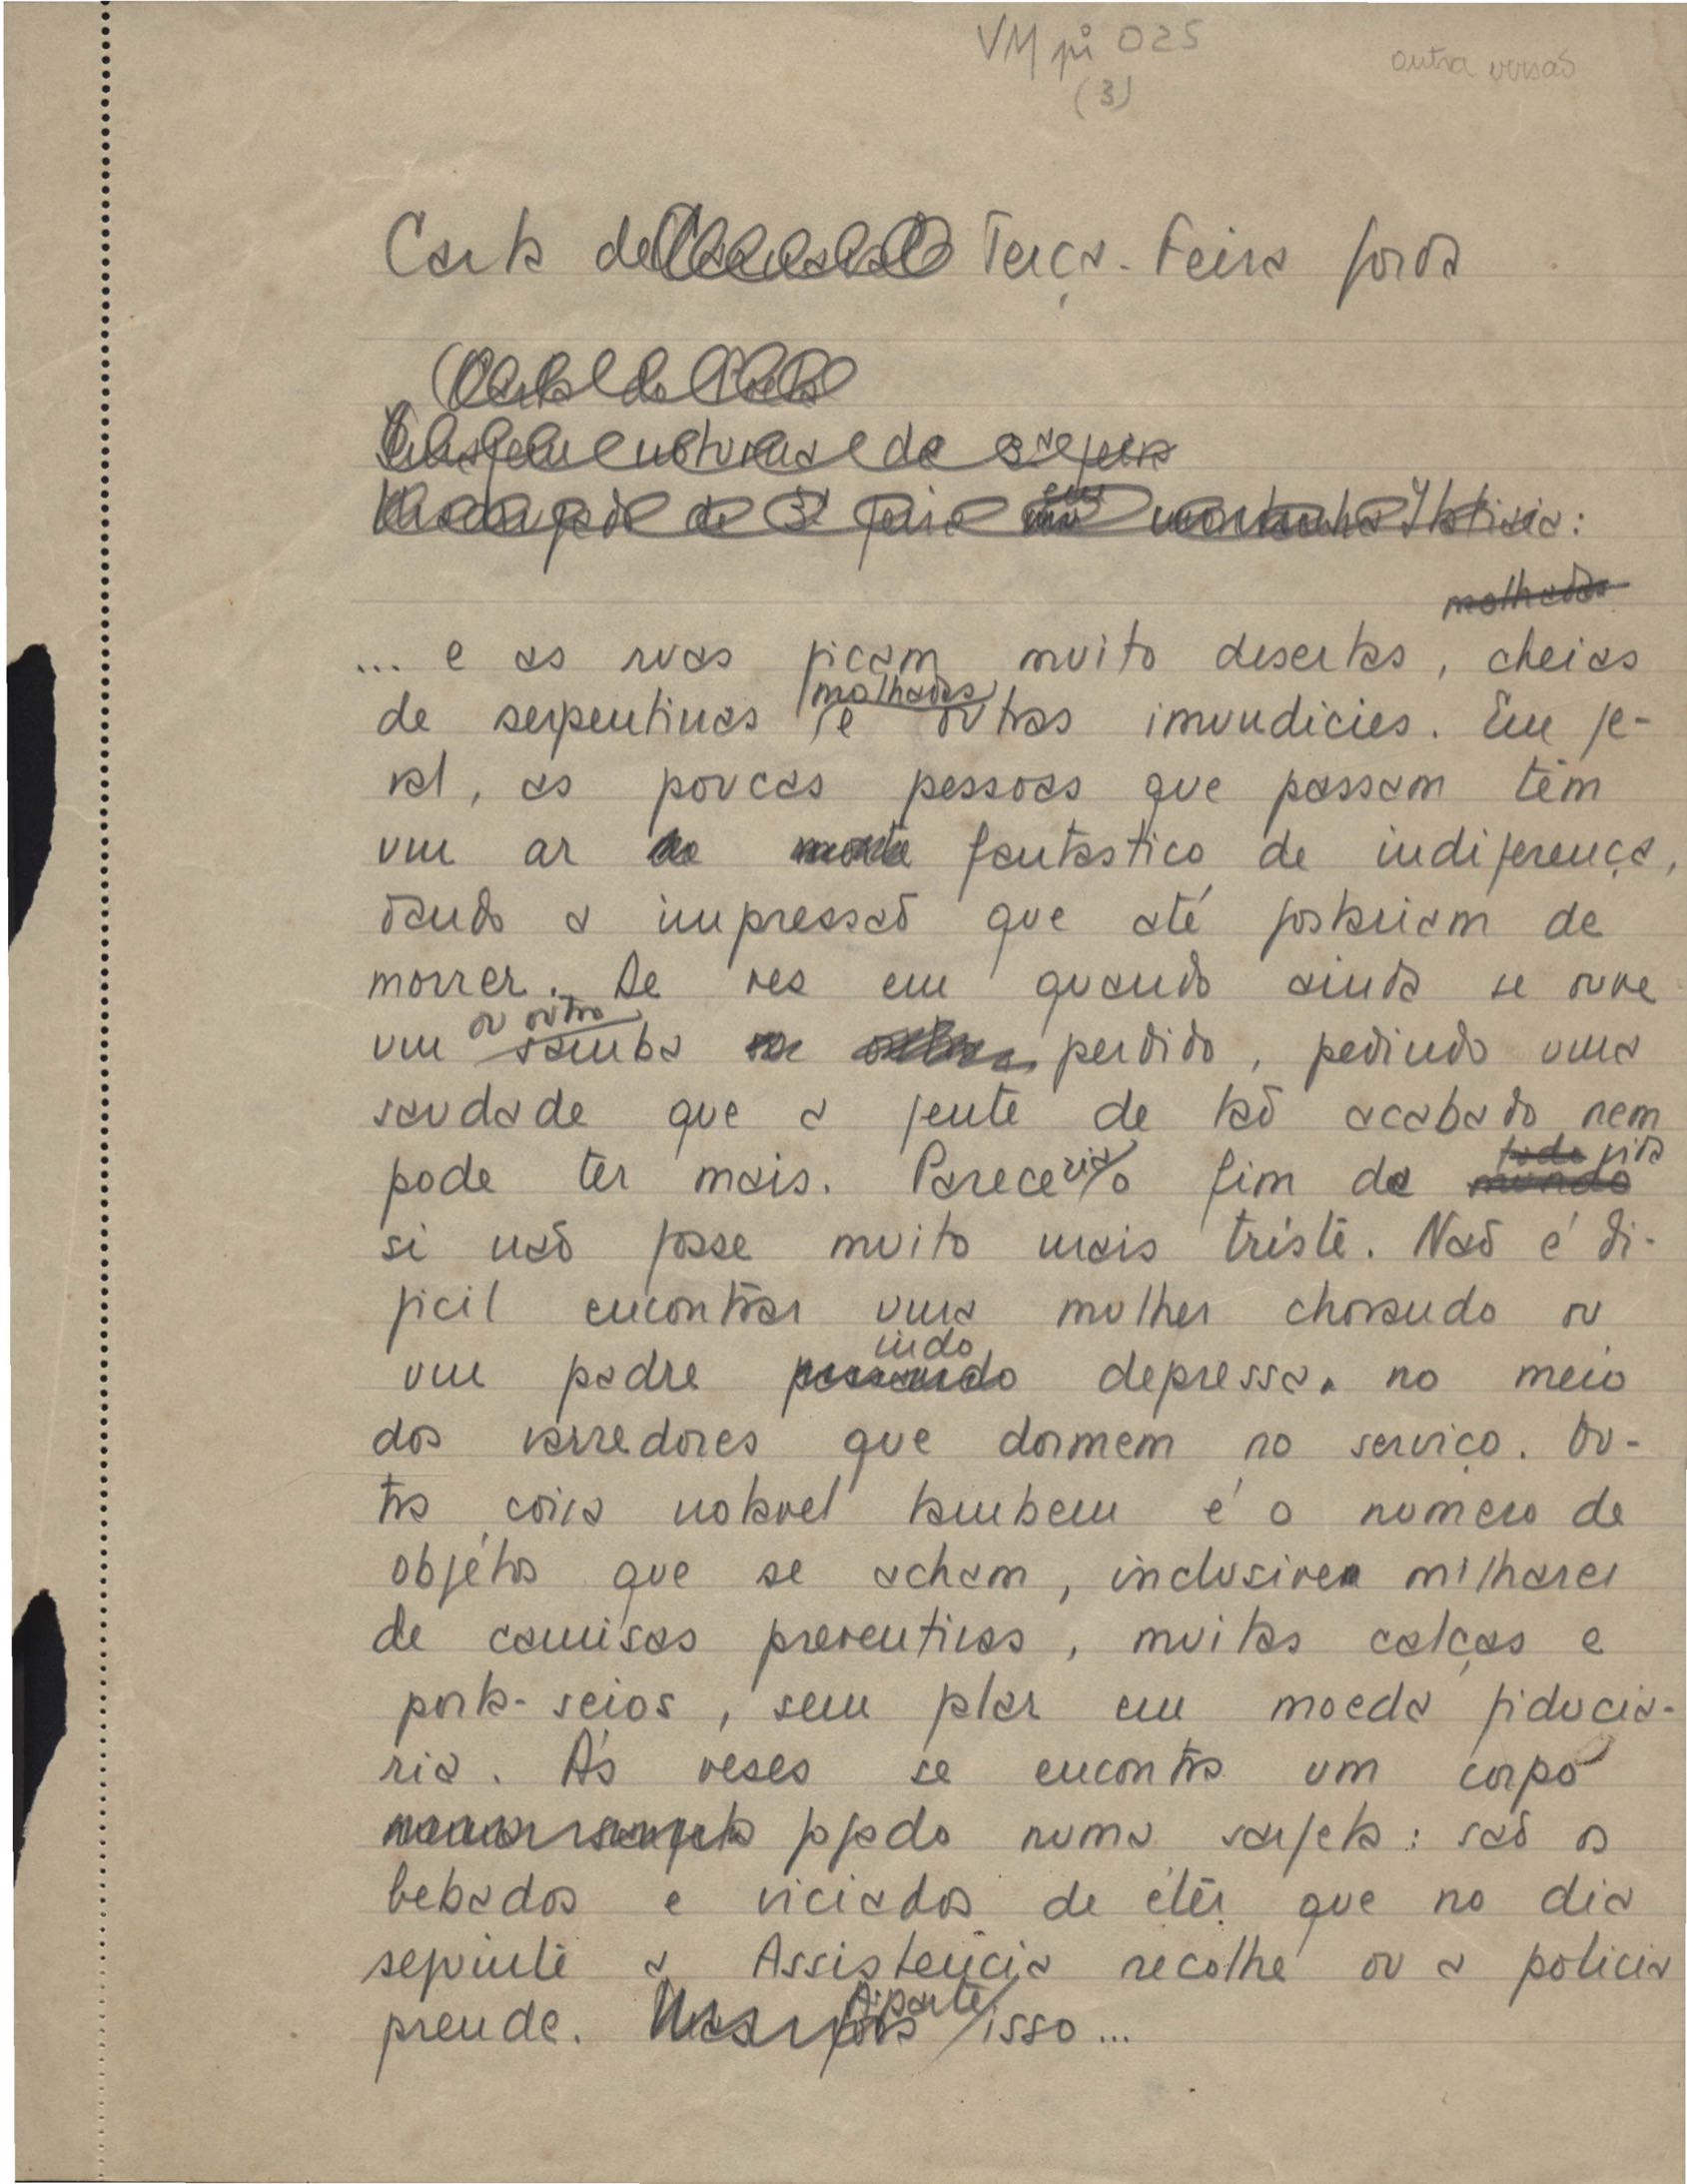 VM pi 025
(3)
outra versaõ
Carta de Terça-Feira gorda
Carta do Poeta
molhadas
... e as ruas ficam muito desertas, cheias
molhadas
de serpentinas e outras imundicies. Em ge-
ral, as poucas pessoas que passam têm
um ar de morte fantastico de indiferença,
dando a impressaõ que até gostariam de
morrer. De vez em quando ainda se ouve
ou outro
um samba ou outro perdido, pedindo uma
saudade que a gente de taõ acabado nem
toda vida
pode ter mais. Pareceria o fim da mundo
si naõ fosse muito mais triste. Naõ é di-
ficil encontrar uma mulher chorando ou
indo
um padre passando depressa no meio
dos varredores que dormem no serviço. Ou-
tra coisa notavel tambem é o numero de
objétos que se acham, inclusive milhares
de camisas preventivas, muitas calças e
porta-seios, sem falar em moeda fiducia-
ria. Ás veses se encontra um corpo
jogado numa sarjeta: saõ os
bebados e viciados de éter que no dia
seguinte a Assistencia recolhe ou a policia
Áparte
prende. isso...